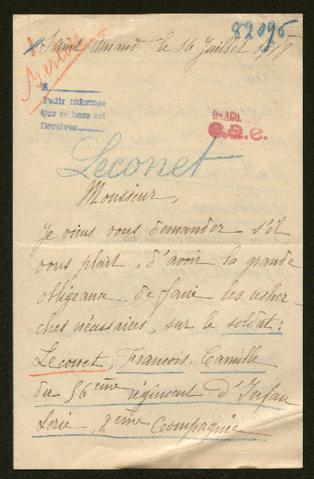 82095
St Amand le 16 Juillet 1917
Berlin
A
Pedir informes
Que se hace así
Devolver
9 AGO.
C.a.e.
Leconet
Monsieur,
Je viens vous demander s'il
vous plait, d'avoir la grande
obligeance de faire les recher-
ches nécessaires, sur le soldat:
Leconet, François, Camille
du 56ème régiment d'Infan
terie, 2ème Compagnie